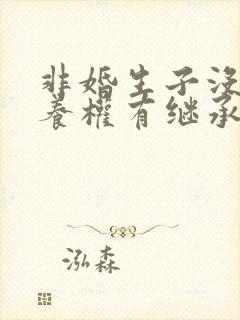 非婚生子没
養權有继承
泓森